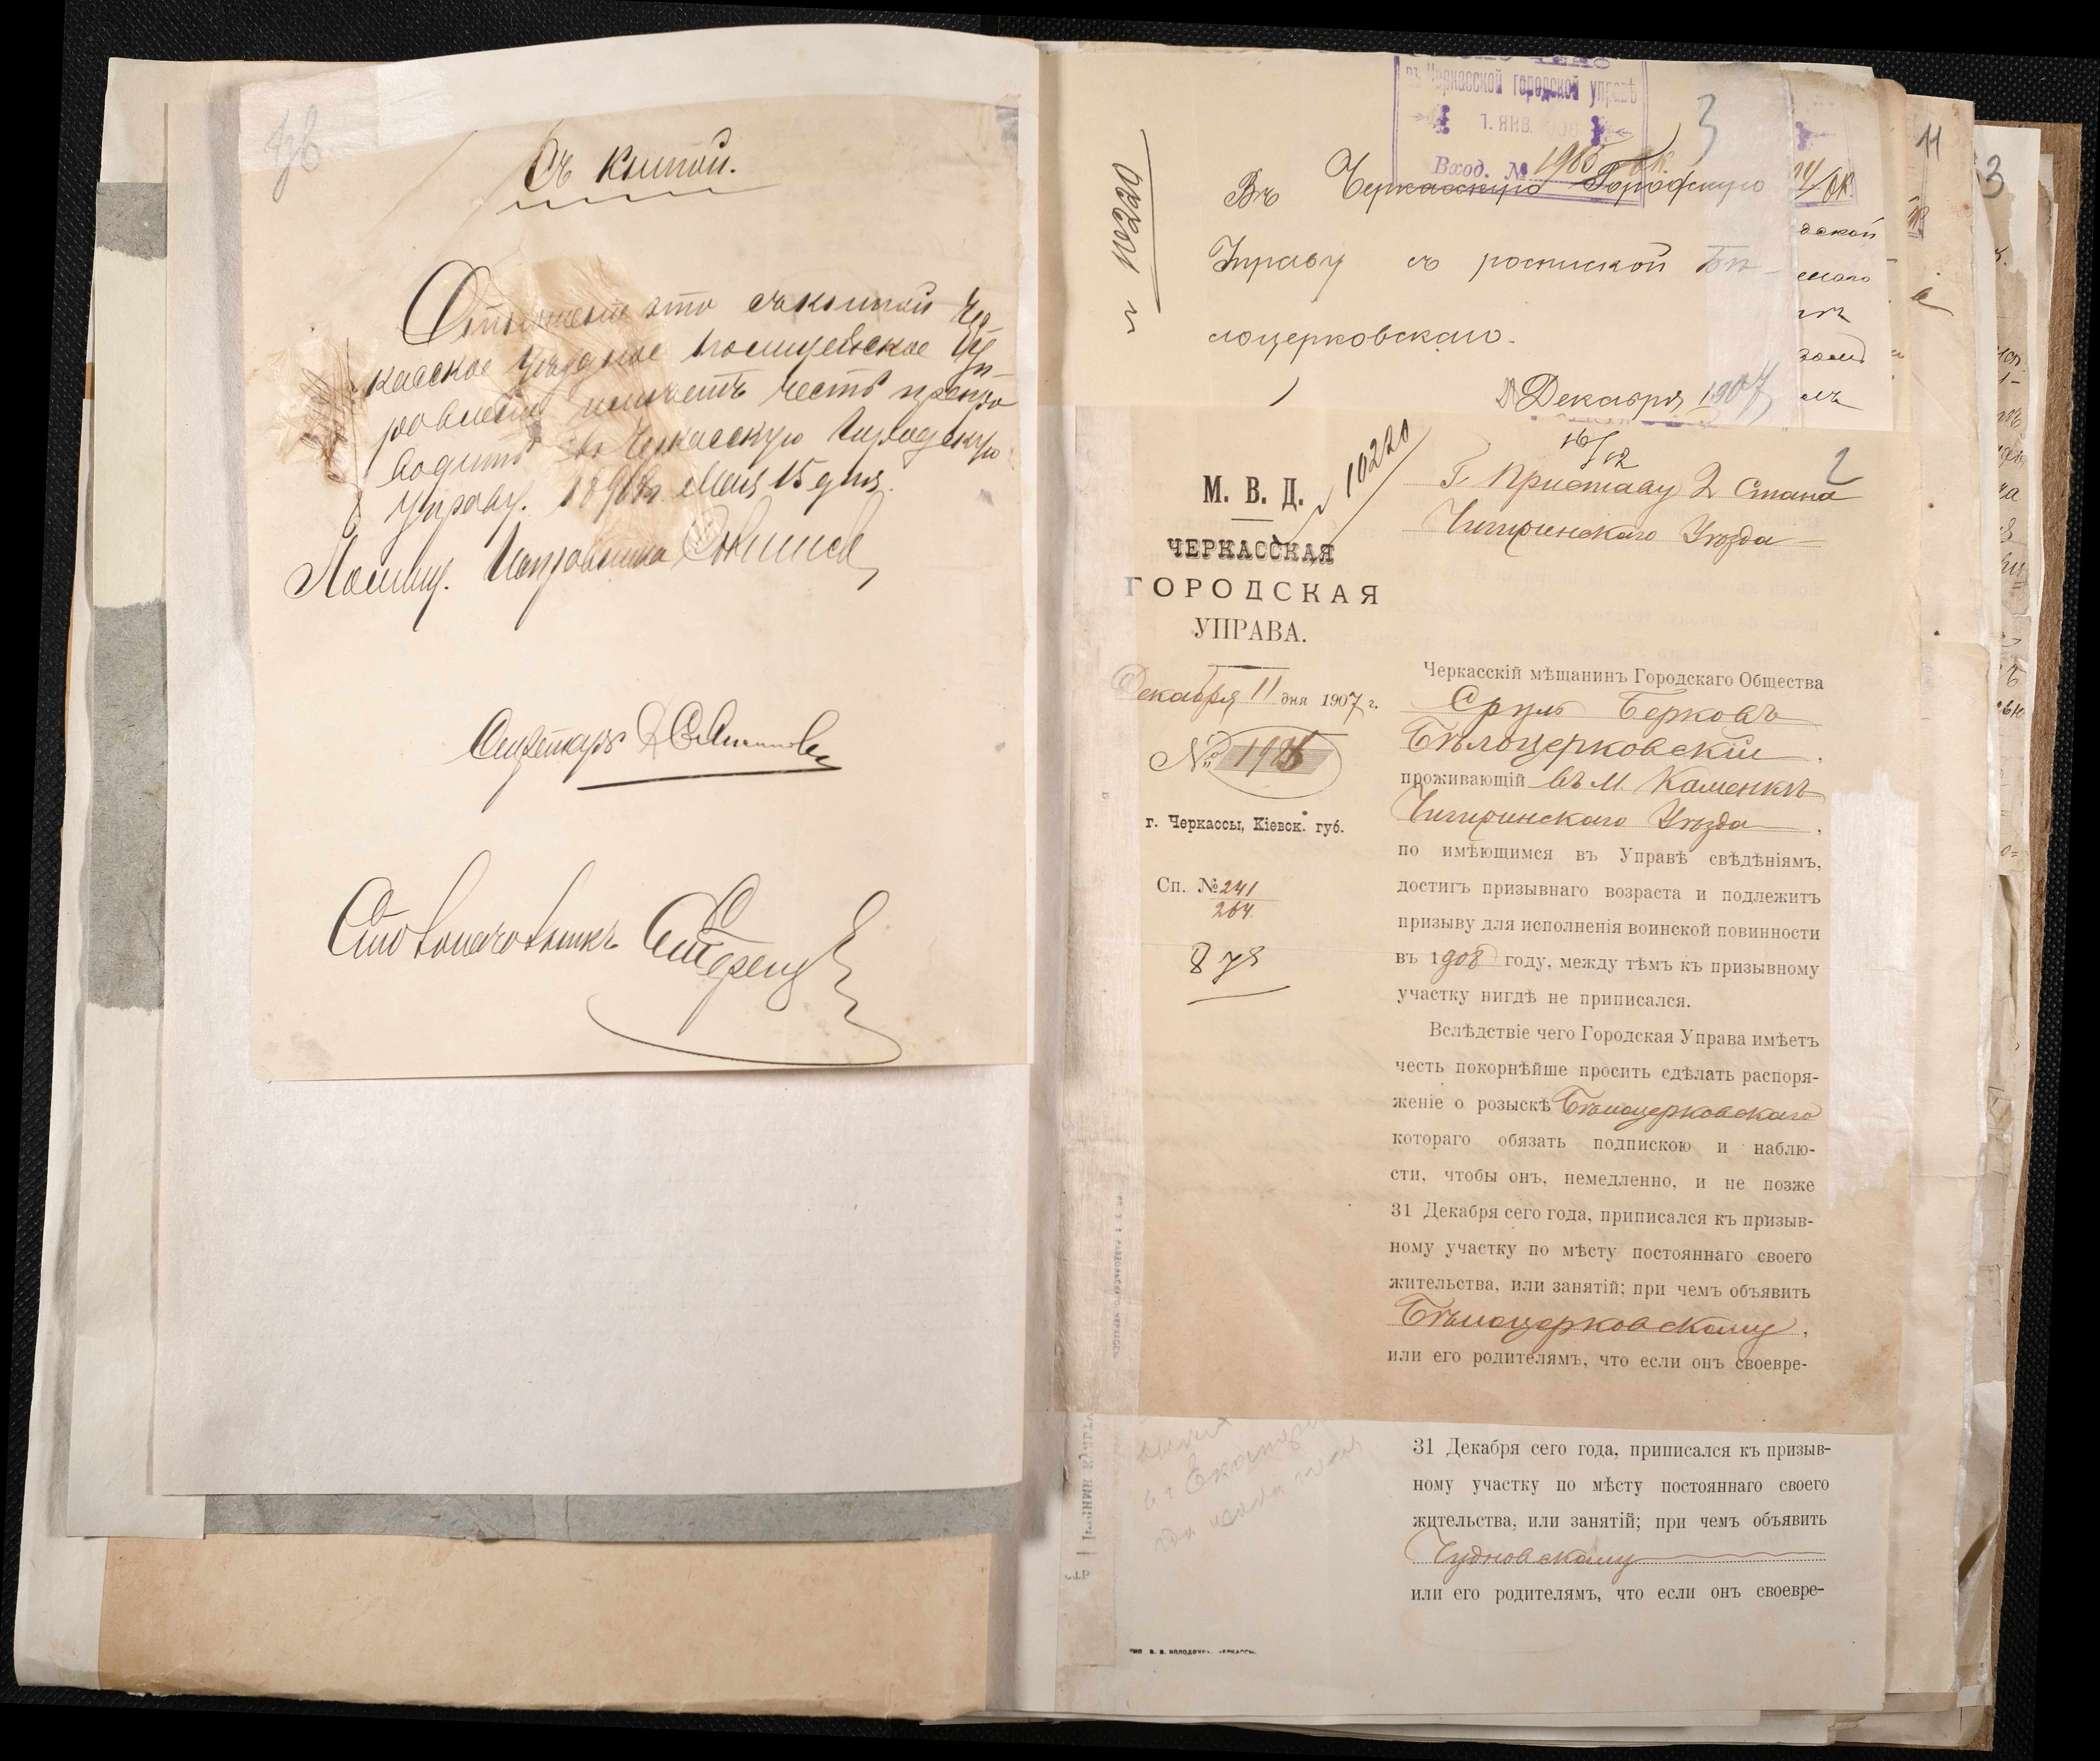 Съ копіей.
Отношеніе это съ копіей Чер-
касское Уѣздное Полицейское Уп-
равленіе имѣетъ честь препро
водить въ Черкасскую Городскую
Управу. Мая 15 дня.
Полиц. Исправника
Секретарь
Столоначальникъ
въ Черкасской городской управѣ
1. ЯНВ. 1908
Вход. № 1985
3
№ 10220
Въ Черкасскую Городскую
Управу съ роспиской Бѣ-
лоцерковскаго.
Декабря 1907
16/12
2
М. В. Д.
№ 10220
ЧЕРКАССКАЯ
ГОРОДСКАЯ
УПРАВА.
Декабря 11 дня 1907 г.
№
г. Черкассы, Кіевск. губ.
Сп. № 241
264
878
Г. Приставу 2 Стана
Чигиринскаго Уѣзда
Черкасскій мѣщанинъ Городскаго Общества
Сруль Берковъ
Бѣлоцерковскій,
проживающій въ М. Каменкѣ
Чигиринскаго Уѣзда,
по имѣющимся въ Управѣ свѣдѣніямъ,
достигъ призывнаго возраста и подлежитъ
призыву для исполненія воинской повинности
въ 1908 году, между тѣмъ къ призывному
участку нигдѣ не приписался.
Вслѣдствіе чего Городская Управа имѣетъ
честь покорнѣйше просить сдѣлать распоря-
женіе о розыскѣ Бѣлоцерковскаго
котораго обязать подпискою и наблю-
сти, чтобы онъ, немедленно, и не позже
31 Декабря сего года, приписался къ призыв-
ному участку по мѣсту постояннаго своего
жительства, или занятій; при чемъ объявить
Бѣлоцерковскому,
или его родителямъ, что если онъ своевре-
31 Декабря сего года, приписался къ призыв-
ному участку по мѣсту постояннаго своего
жительства, или занятій; при чемъ объявить
Чудновскому
или его родителямъ, что если онъ своевре-
11
3